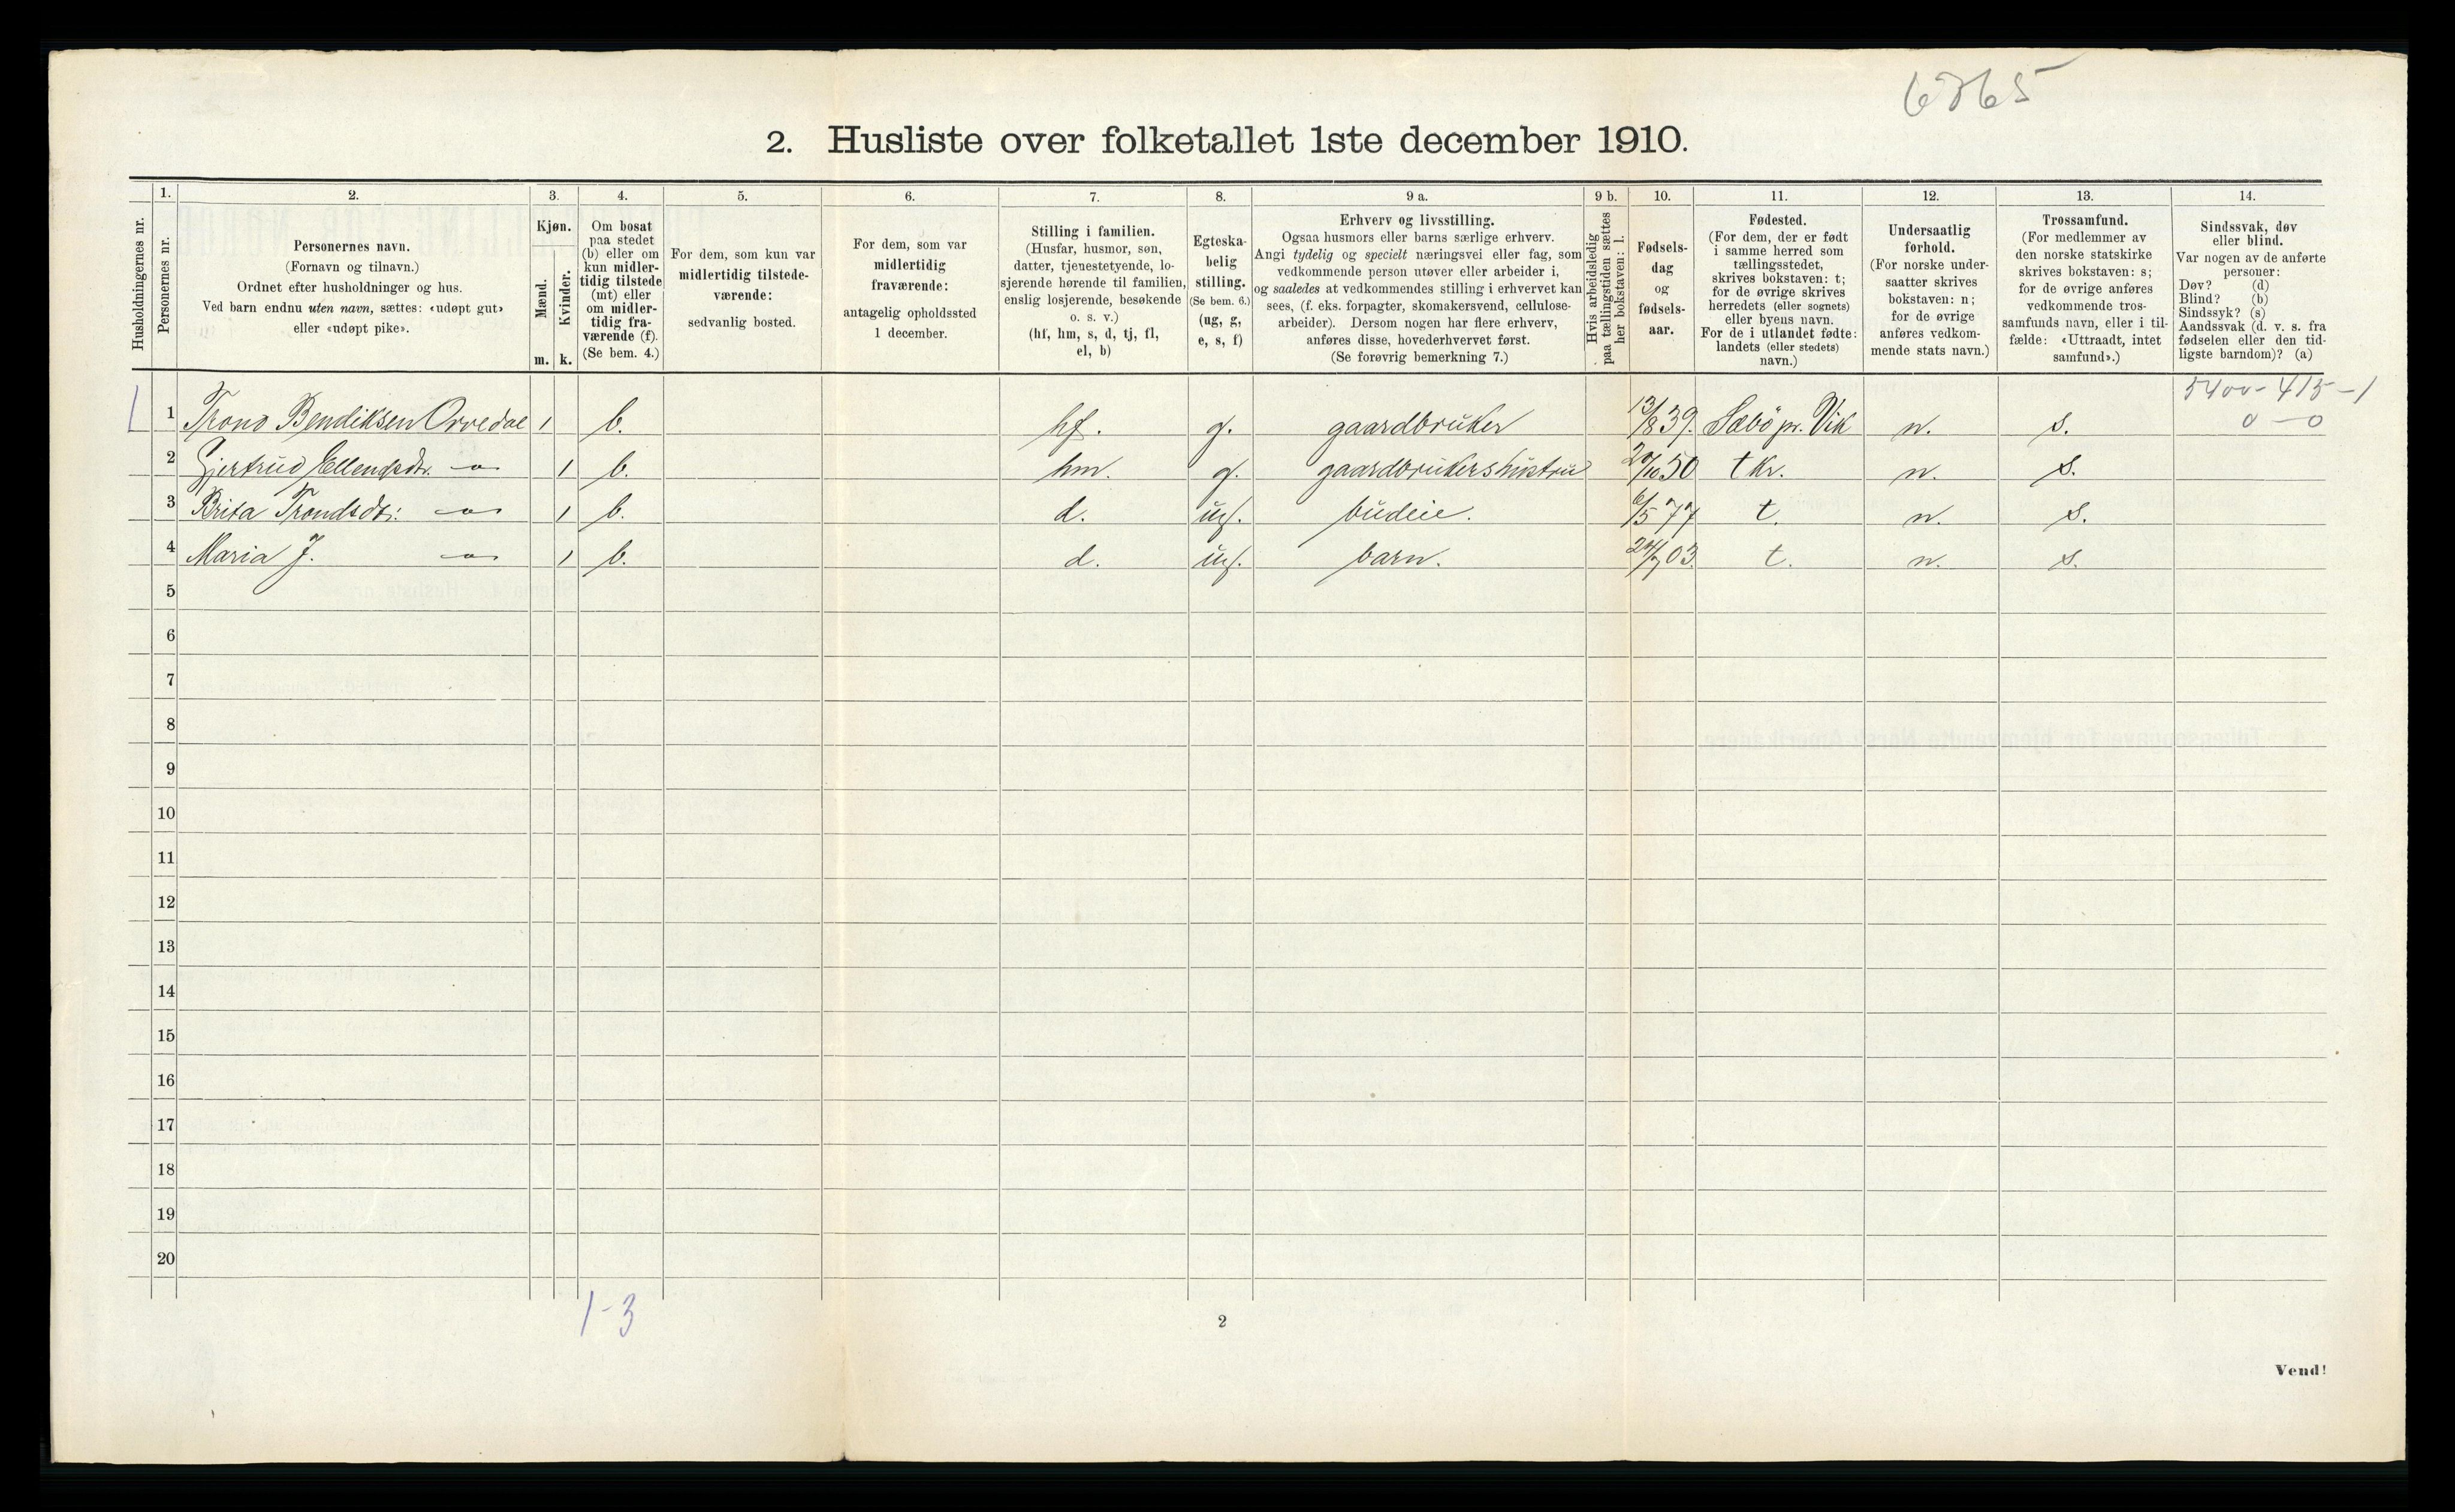 6365
2. Husliste over folketallet 1ste december 1910.
Husholdningernes nr.
1.
Personernes nr.
2.
Personernes navn.
(Fornavn og tilnavn.)
Ordnet efter husholdninger og hus.
Ved barn endnu uten navn, sættes: «udøpt gut»
eller «udøpt pike».
3.
Kjøn.
Mænd.
m.
Kvinder.
k.
4.
Om bosat
paa stedet
(b) eller om
kun midler-
tidig tilstede
(mt) eller
om midler-
tidig fra-
værende (f).
(Se bem. 4.)
5.
For dem, som kun var
midlertidig tilstede-
værende:
sedvanlig bosted.
6.
For dem, som var
midlertidig
fraværende:
antagelig opholdssted
1 december.
7.
Stilling i familien.
(Husfar, husmor, søn,
datter, tjenestetyende, lo-
sjerende hørende til familien,
enslig losjerende, besøkende
o. s. v.)
(hf, hm, s, d, tj, fl,
el, b)
8.
Egteska-
belig
stilling.
(Se bem. 6.)
(ug, g,
e, s, f)
9 a.
Erhverv og livsstilling.
Ogsaa husmors eller barns særlige erhverv.
Angi tydelig og specielt næringsvei eller fag, som
vedkommende person utøver eller arbeider i,
og saaledes at vedkommendes stilling i erhvervet kan
sees, (f. eks. forpagter, skomakersvend, cellulose-
arbeider). Dersom nogen har flere erhverv,
anføres disse, hovederhvervet først.
(Se forøvrig bemerkning 7.)
9 b.
Hvis arbeidsledig
paa tællingstiden sættes
her bokstaven: l.
10.
Fødsels-
dag
og
fødsels-
aar.
11.
Fødested.
(For dem, der er født
i samme herred som
tællingsstedet,
skrives bokstaven: t;
for de øvrige skrives
herredets (eller sognets)
eller byens navn.
For de i utlandet fødte:
landets (eller stedets)
navn.)
12.
Undersaatlig
forhold.
(For norske under-
saatter skrives
bokstaven: n;
for de øvrige
anføres vedkom-
mende stats navn.)
13.
Trossamfund.
(For medlemmer av
den norske statskirke
skrives bokstaven: s;
for de øvrige anføres
vedkommende tros-
samfunds navn, eller i til-
fælde: «Uttraadt, intet
samfund».)
14.
Sindssvak, døv
eller blind.
Var nogen av de anførte
personer:
Døv? (d)
Blind? (b)
Sindssyk? (s)
Aandssvak (d. v. s. fra
fødselen eller den tid-
ligste barndom)? (a)
5400-415-1
0-0
1 Trond Bendiksen Orvedal 1 b. hf. g. gaardbruker 13/8 39. Sæbö pr. Vik n. s.
2 Gjertrud Ellendsdtr. —"— 1 b. hm. g. gaardbrukershustru 20/10 50 t Kr. n. s.
3 Brita Trondsdtr. —"— 1 b. d. ug. budeie. 6/5 77 t. n. s.
4 Maria J. —"— 1 b. d. ug. barn. 24/7 03. t. n. s.
5
6
7
8
9
10
11
12
13
14
15
16
17
18
19
20
1-3
2
Vend!